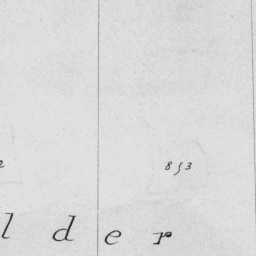 853
lder